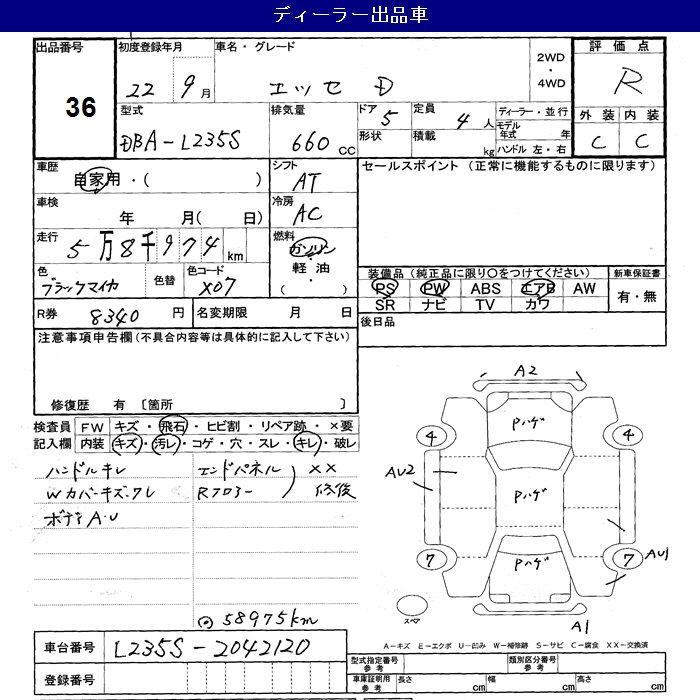 ディーラー出品車
出品番号 36
初度登録年月 22 9月
車名・グレード エッセ D
2WD・4WD
評価点 R
型式 DBA-L235S
排気量 660 CC
ドア 5
形状
定員 4人
積載 kg
ディーラー・並行
モデル年式 年
ハンドル 左・右
外装 C
内装 C
車歴 自家用・( )
シフト AT
セールスポイント (正常に機能するものに限ります)
車検 年 月( 日)
冷房 AC
走行 5万8千974km
燃料 ガソリン・軽油・( )
色 ブラックマイカ
色替
色コード X07
装備品(純正品に限り○をつけてください)
新車保証書
PS PW ABS エアB AW
SR ナビ TV カワ
有・無
R券 8340円
名変期限 月 日
後日品
注意事項申告欄(不具合内容等は具体的に記入して下さい)
修復歴 有 〔箇所 〕
検査員記入欄
FW キズ・飛石・ヒビ割・リペア跡・×要
内装 キズ・汚レ・コゲ・穴・スレ・キレ・破レ
ハンドルキレ
Wカバーキズ・ワレ
ボデーA・U
エンドパネル
Rフロアー
XX
修復
◎58975km
A2
Pハゲ
4
4
AU2
Pハゲ
7
Pハゲ
7
AU1
スペア
A1
A-キズ E-エクボ U-凹み W-補修跡 S-サビ C-腐食 XX-交換済
車台番号 L235S-2042120
登録番号
型式指定番号 参考
類別区分番号 参考
車庫証明用 参考
長さ cm
幅 cm
高さ cm